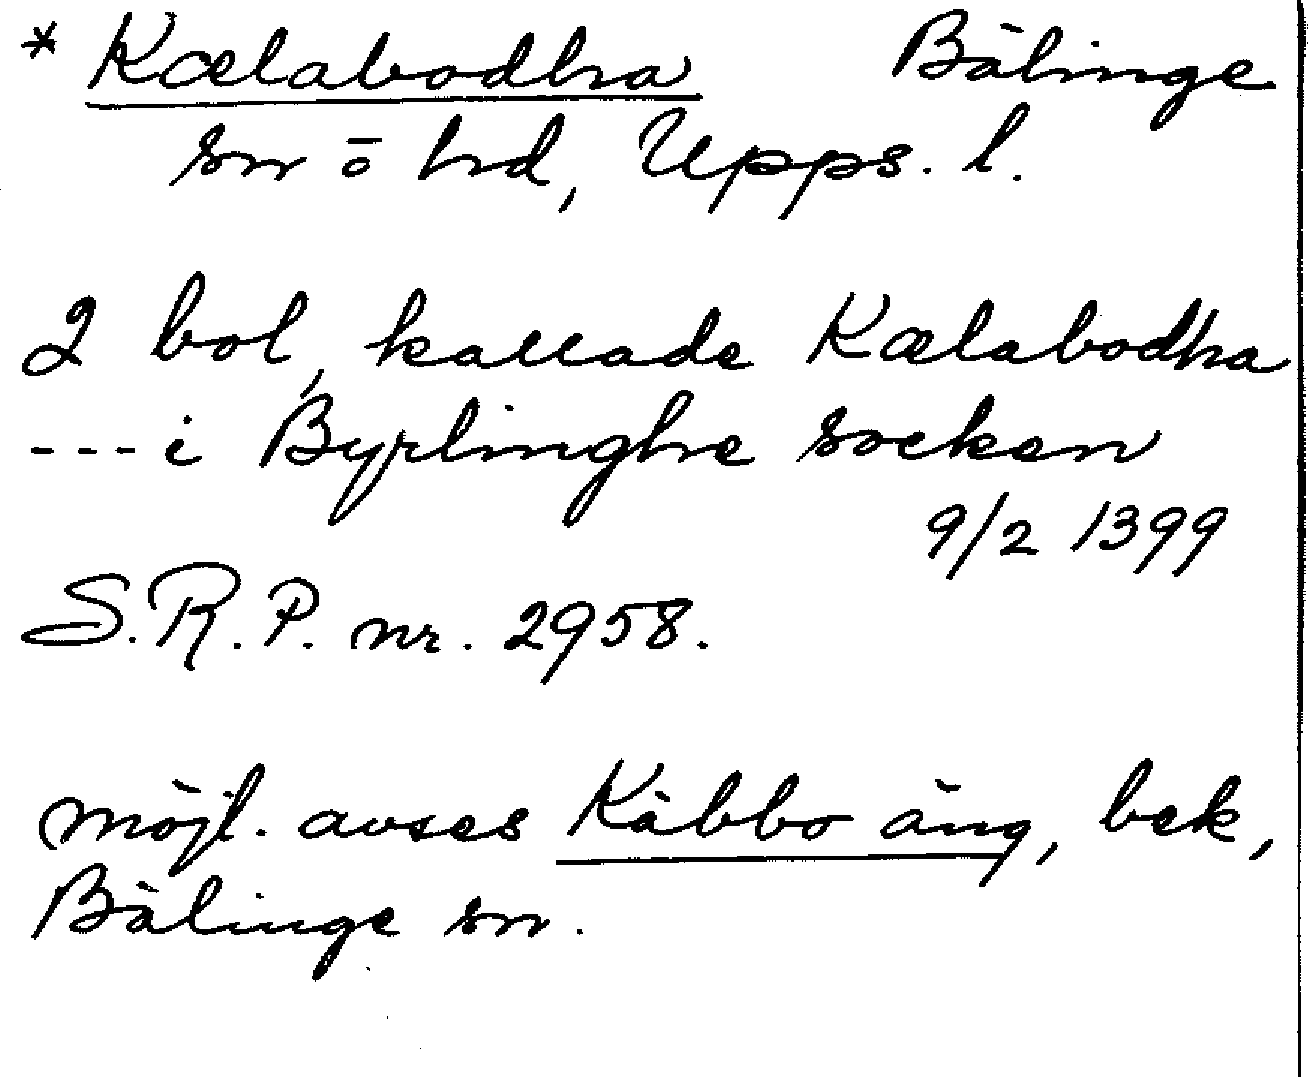 * Kælabodha Bälinge
sn o hd, Upps. l.
2 bol, kallade Kælabodha
--- i Byrlinghe socken
9/2 1399
S.R.P. nr. 2958.
möjl. avses Käbbo äng, bek,
Bälinge sn.